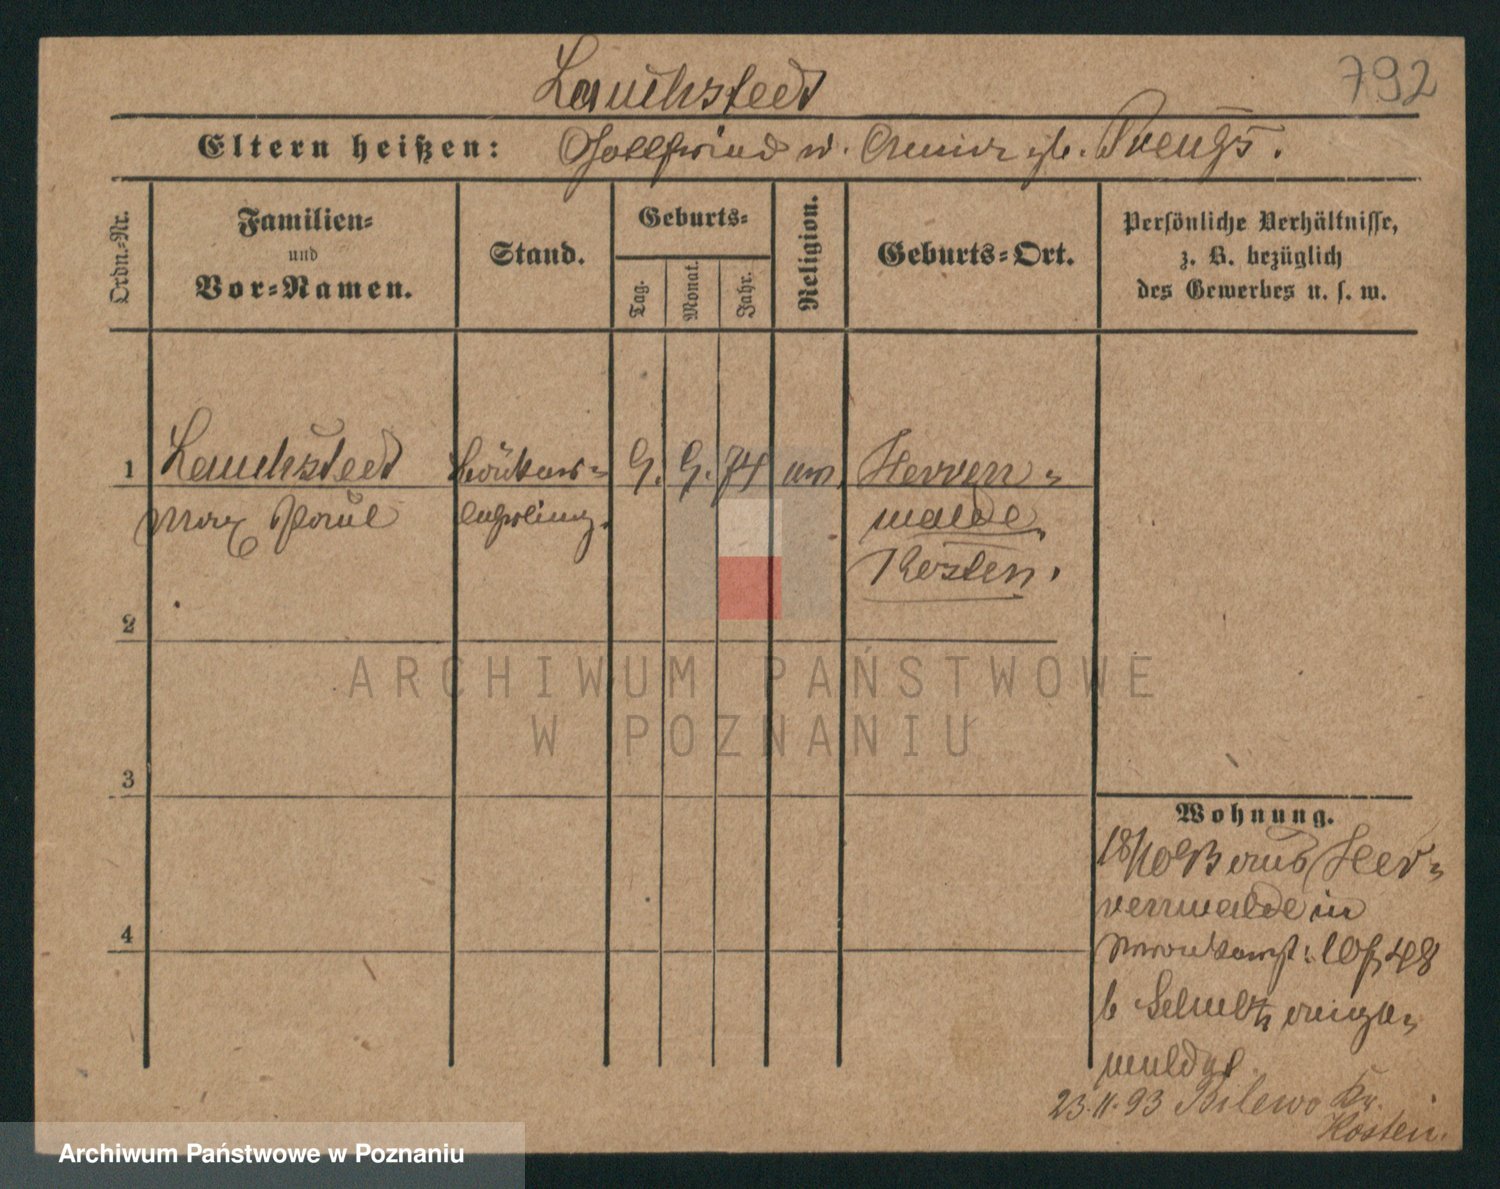 792
Lauchstedt
Eltern heißen: Gottfried u. geb.
Ordn.-Nr.
Familien-
und
Vor-Namen.
Stand.
Geburts-
Tag.
Monat.
Jahr.
Religion.
Geburts-Ort.
Persönliche Verhältnisse,
z. B. bezüglich
des Gewerbes u. s. w.
1 Lauchstedt 9. 9. 74 Herren-
Max Paul walde
Kosten.
2
3
4
Wohnung.
18/10 93 aus Her-
renwalde in
10/ 48
b Schultz ange-
meldet.
23.11.93 Kr.
Kosten.
ARCHIWUM PAŃSTWOWE
W POZNANIU
Archiwum Państwowe w Poznaniu